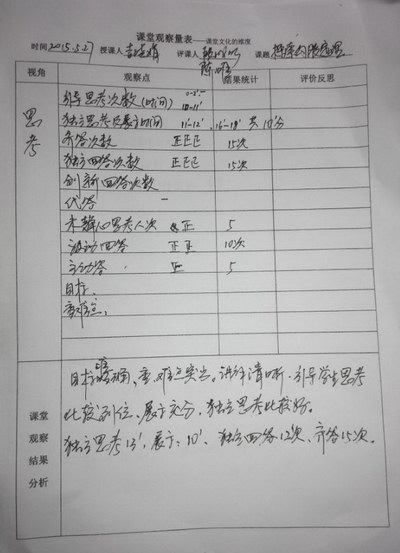 课堂观察量表——课堂文化的维度
时间 2015.5.27 授课人 评课人 课题
视角 观察点 结果统计 评价反思
思考
引导思考次数(时间) 0-2'
10-11'
独立思考及展示时间 11-12' 16-18' 共10分
齐答次数 正正正 15次
独立回答次数 正正正 15次
创新回答次数
优答
未静心思考人次 正 5
被动回答 正正 10次
主动答 正 5
目标、
重难点、
课堂观察结果分析
目标明确、重、难点突出。讲解清晰。引导学生思考
比较到位、展示充分、独立思考比较好。
独立思考13'、展示:10'、独立回答12次、齐答15次。